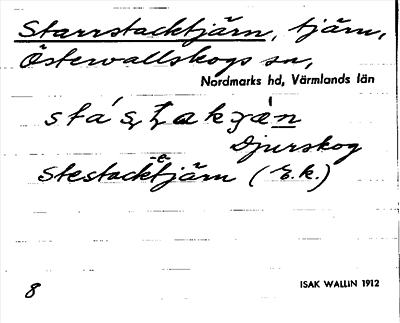 Starrstacktjärn, tjärn,
Östervallskogs sn,
Nordmarks hd, Värmlands län
Djurskog
Stestacktjärn (E.k.)
8
ISAK WALLIN 1912